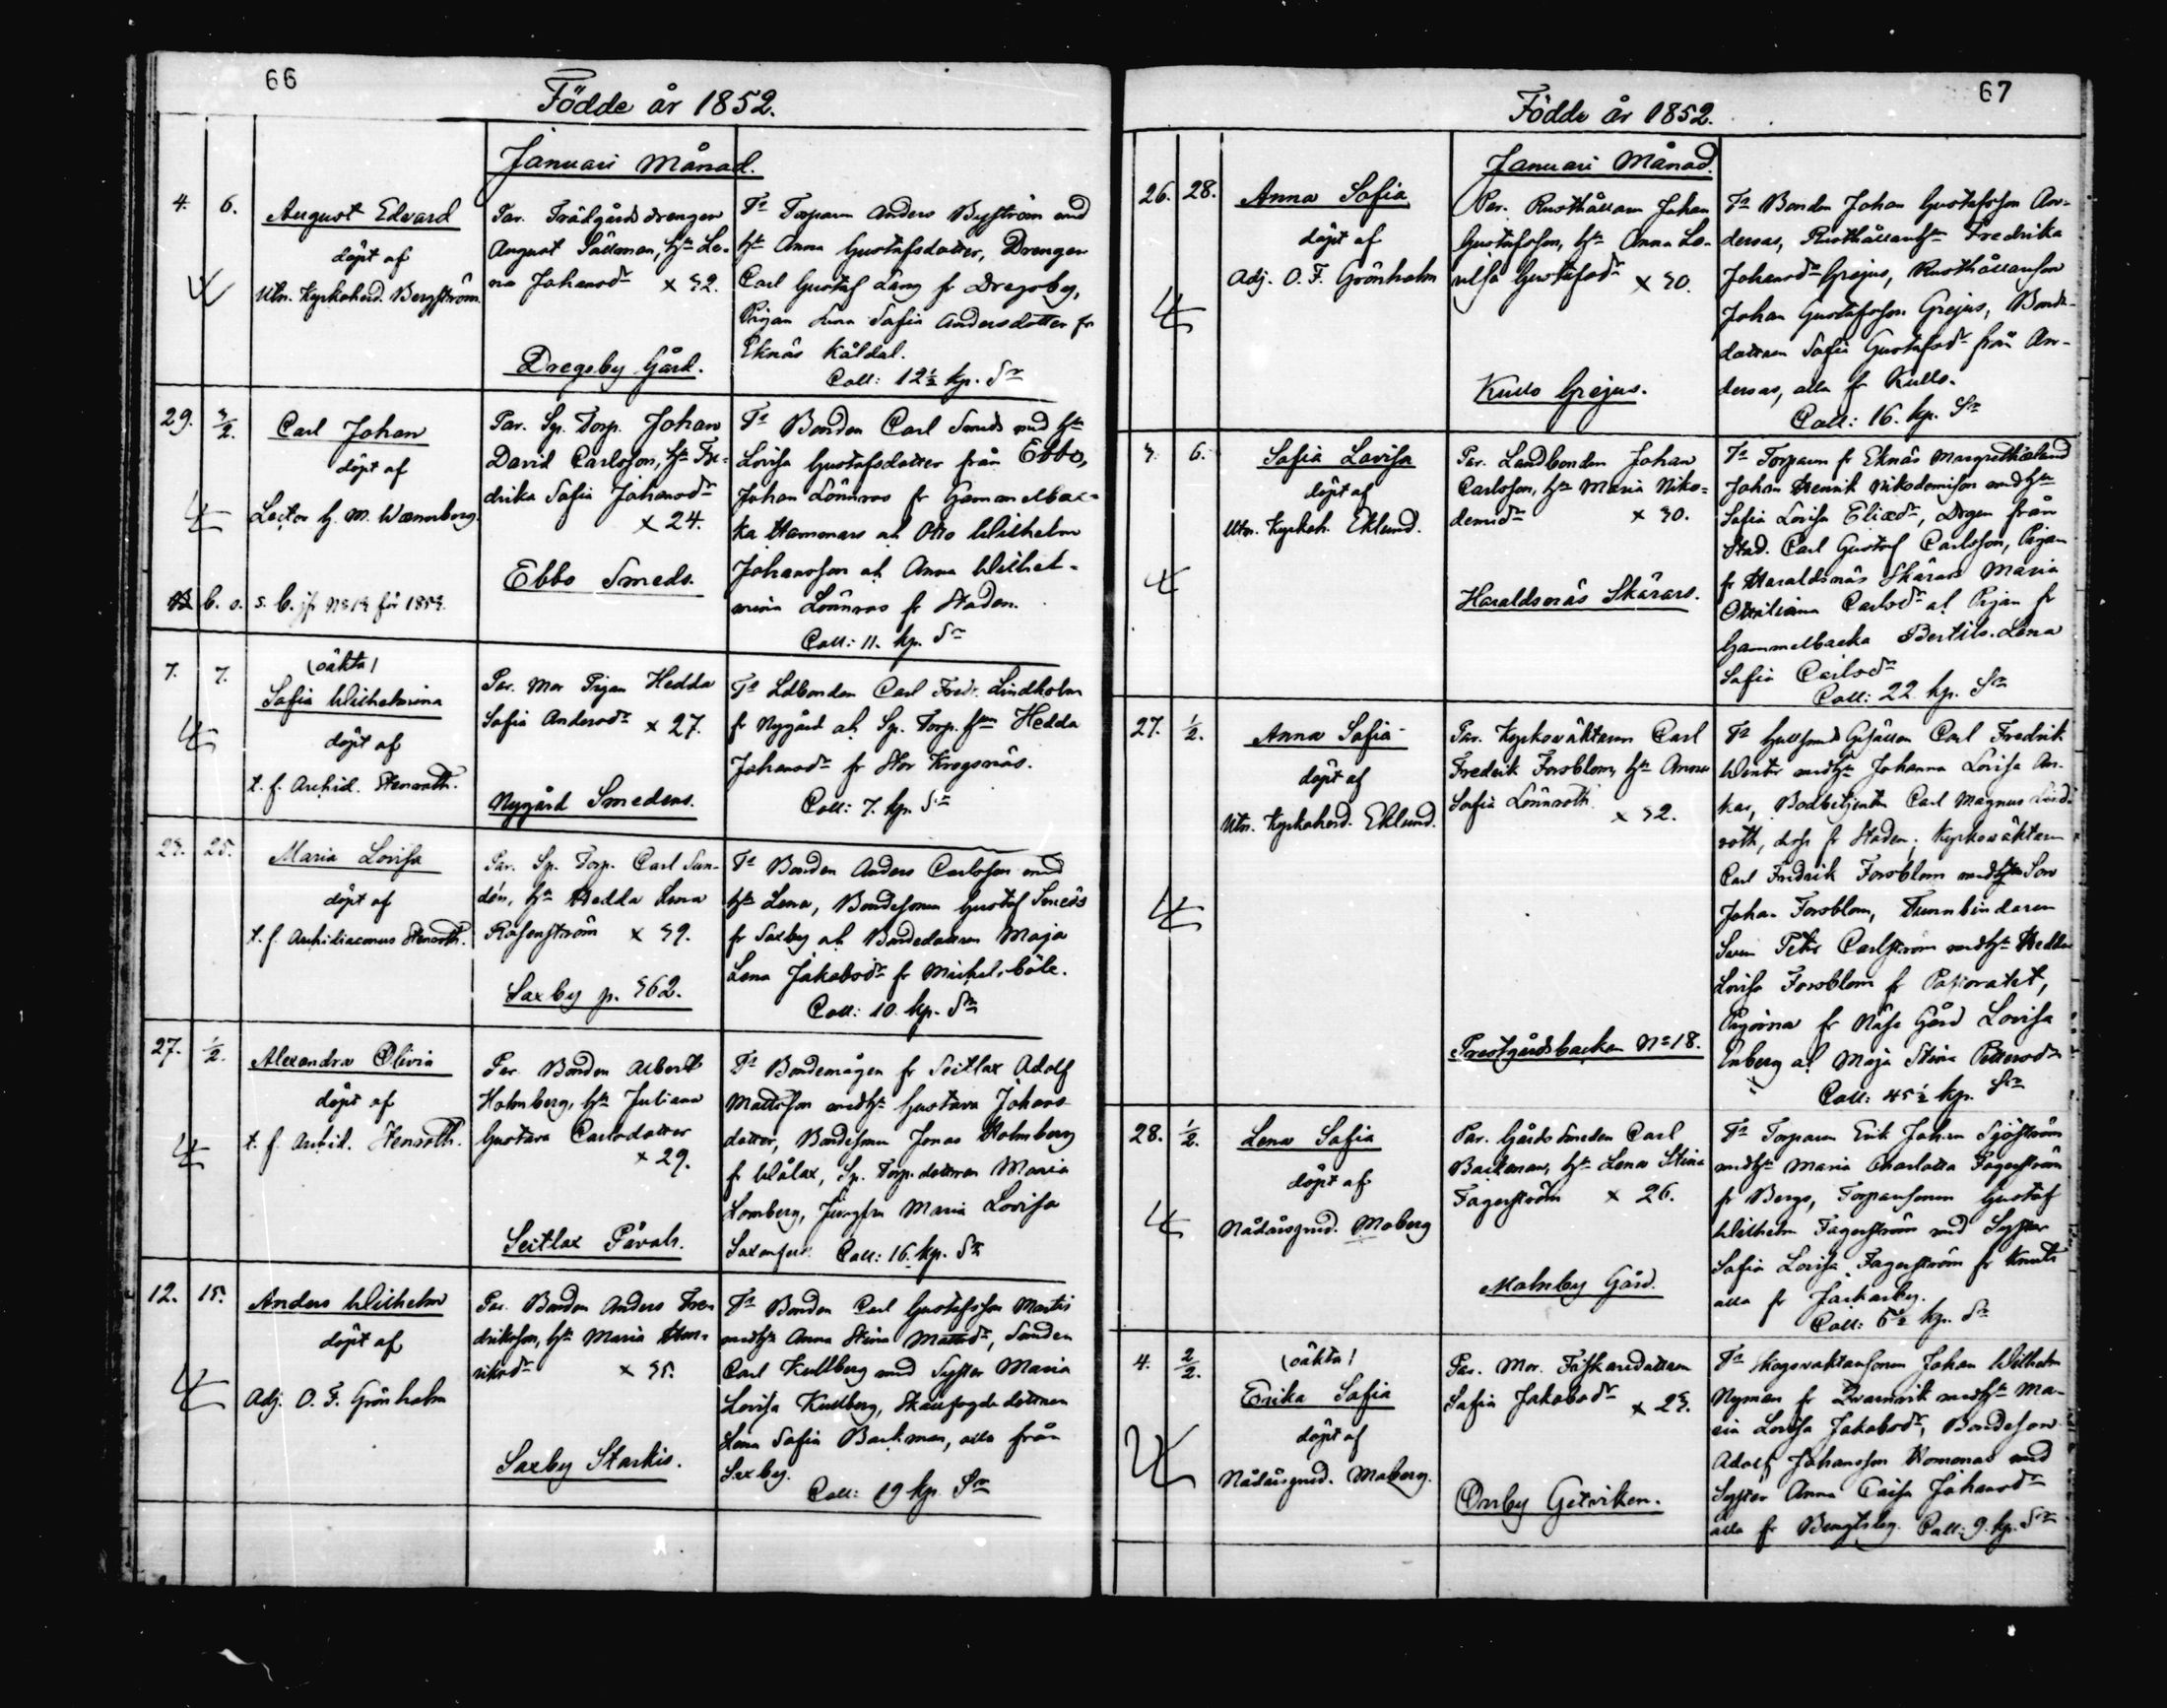 66
Födde år 1852.
Januari Månad.
4. 6.
August Edvard
döpt af
Utn. Kyrkoherd. Bergström.
Par. Trädgårdsdrengen
August Sällman, hu Le-
na Johansdr x 32.
Dregsby Gård.
Ts Torparen Anders Bergström med
hu Anna Gustafsdotter, Drengen
Carl Gustaf Lång fr Dregsby,
Pigan Lena Sofia Andersdotter fr
Eknäs Kåldal.
Coll: 12½ kp. Sr
29. 3/2.
Carl Johan
döpt af
Lector G. M. Wænerberg.
b. o. s. b. jfr No 19 för 1853.
Par. Sp. Torp. Johan
David Carlsson, hu Fre-
drika Sofia Johansdr
x 24.
Ebbo Smeds.
Ts Bonden Carl Smeds med hu
Lovisa Gustafsdotter från Ebbo,
Johan Lönnros fr Gammelbac-
ka Hammars ah Otto Wilhelm
Johansson ah Anna Wilhel-
mina Lönnros fr Staden.
Coll: 11. kp. Sr
7. 7.
(oäkta)
Sofia Wilhelmina
döpt af
t. f. Archid. Stenroth.
Par. Mor Pigan Hedda
Sofia Andersdr x 27.
Nygård Smedens.
Ts Ldbonden Carl Fredr. Lindholm
fr Nygård ah Sp. Torp. hun Hedda
Johansdr fr Stor Krogsnäs.
Coll: 7. kp. Sr
23. 25.
Maria Lovisa
döpt af
t. f. Archidiaconus Stenroth.
Par. Sp. Torp. Carl Sun-
dén, hu Hedda Lena
Rosenström x 39.
Saxby p. 362.
Ts Bonden Anders Carlsson med
hu Lena, Bondesonen Gustaf Smeds
fr Saxby ah Bondedottren Maja
Lena Jakobsdr fr Mickelsböle.
Coll: 10. kp. Sr
27. 1/2.
Alexandra Olivia
döpt af
t. f. Archid. Stenroth.
Par. Bonden Albert
Holmberg, hu Juliana
Gustava Carlsdotter
x 29.
Seitlax Påvals.
Ts Bondemågen fr Seitlax Adolf
Mattsson med hu Gustava Johans-
dotter, Bondesonen Jonas Holmberg
fr Wålax, Sp. Torp. dottren Maria
Lomberg, Jungfru Maria Lovisa
Coll: 16. kp. Sr
12. 15.
Anders Wilhelm
döpt af
Adj. O. F. Grönholm
Par. Bonden Anders Fre-
driksson, hu Maria Hen-
riksdr x 35.
Saxby Starkis.
Ts Bonden Carl Gustafsson Martis
med hu Anna Stina Mattsdr, Smeden
Carl Kullberg med Syster Maria
Lovisa Kullberg, Skaufogde dottren
Lena Sofia Backman, alla från
Saxby.
Coll: 19 kp. Sr
67
Födde år 1852.
Januari Månad.
26. 28.
Anna Sofia
döpt af
Adj. O. F. Grönholm
Par. Rusthållaren Johan
Gustafsson, hu Anna Lo-
visa Gustafsdr x 30.
Kullo Grejus.
Ts Bonden Johan Gustafsson An-
dersas, Rusthållarehu Fredrika
Johansdr Grejus, Rusthållarson
Johan Gustafsson Grejus, Bonde-
dottren Sofia Gustafsdr från An-
dersas, alla fr Kullo.
Coll: 16. kp. Sr
3. 6.
Sofia Lovisa
döpt af
Utn. Kyrkoh. Eklund.
Par. Landbonden Johan
Carlsson, hu Maria Niko-
demidr x 30.
Haraldsnäs Skärars.
Ts Torparen fr Eknäs Margrethælund
Johan Henrik Nikodemisson med hu
Sofia Lovisa Eliædr, Drgen från
Stad. Carl Gustaf Carlsson, Pigan
fr Haraldsnäs Skärars Maria
Ottiliana Carlsdr ah Pigan fr
Gammelbacka Bertils Lena
Sofia Carlsdr
Coll: 22. kp. Sr
27. 1/2.
Anna Sofia
döpt af
Utn. Kyrkoherd. Eklund.
Par. Kyrkoväktaren Carl
Fredrik Forsblom, hu Anna
Sofia Lönnroth x 32.
Prestgårdsbacken No 18.
Ts Gullsmeds Gesällen Carl Fredrik
Wenter med hu Johanna Lovisa An-
kar, Bodbetjenten Carl Magnus Lind-
roth, fr Staden, Kyrkoväktaren
Carl Fredrik Forsblom med Son
Johan Forsblom, Tunnbindaren
Sven Petter Carlström med hu Hedda
Lovisa Forsblom fr Pastoratet,
Pigorna fr Näse Gård Lovisa
Enberg ah Maja Stina Pettersdr
Coll: 45½ kp. Sr
28. 1/2.
Lena Sofia
döpt af
Nådårspred. Moberg
Par. Gårds Smeden Carl
Backman, hu Lena Stina
Fagerström x 26.
Malmby Gård.
Ts Torparen Erik Johan Sjöström
med hu Maria Charlotta Fagerström
fr Bergs, Torparsonen Gustaf
Wilhelm Fagerström med Syster
Sofia Lovisa Fagerström fr Knuts
alla fr Jackarby.
Coll: 6½ kp. Sr
4. 2/2.
(oäkta)
Erika Sofia
döpt af
Nådårspred. Moberg.
Par. Mor. Fiskaredottren
Sofia Jakobsdr x 23.
Onby Getviken.
Ts Skogsvaktarsonen Johan Wilhelm
Nyman fr Kvarnvik med hu Ma-
ria Lovisa Jakobsdr, Bondeson
Adolf Johansson Romonas med
Syster Anna Caisa Johansdr
alla fr Bengtsby. Coll: 9. kp. Sr